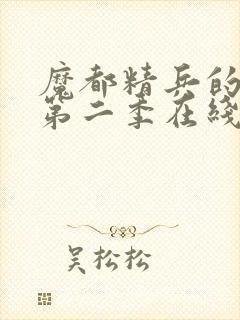 魔都精兵的
第二季在线
吴松松